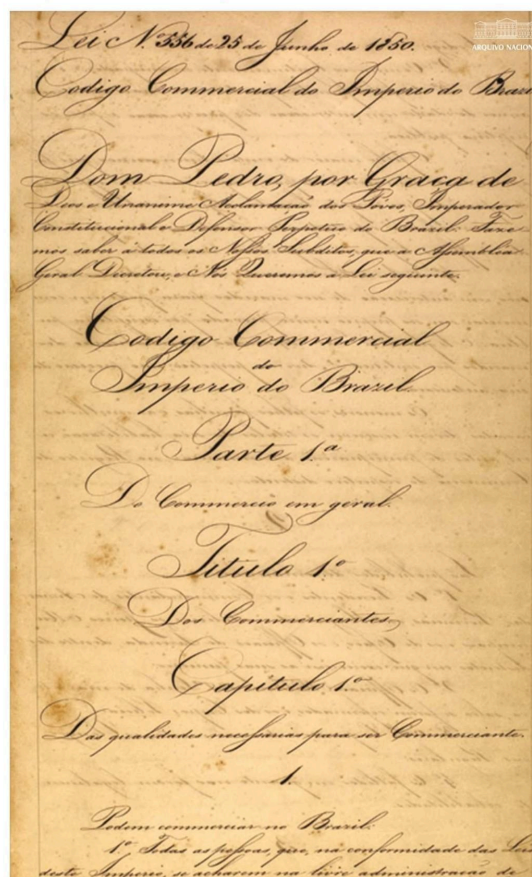 Lei N. 556 de 25 de Junho de 1850.
ARQUIVO NACION
Codigo Commercial do Imperio do Brazi
Dom Pedro, por Graça de
Deos e Unanime Acclamação dos Povos, Imperador
Constitucional e Defensor Perpetuo do Brazil: Faze-
mos saber a todos os Nossos Subditos, que a Assembléa
Geral Decretou, e Nós Queremos a Lei seguinte.
Codigo Commercial
do
Imperio do Brazil
Parte 1ª
Do Commercio em geral.
Titulo 1º
Dos Commerciantes
Capitulo 1º
Das qualidades necessarias para ser Commerciante.
1.
Podem commerciar no Brazil:
1º Todas as pessoas, que, na conformidade das Leis
deste Imperio, se acharem na livre administração de